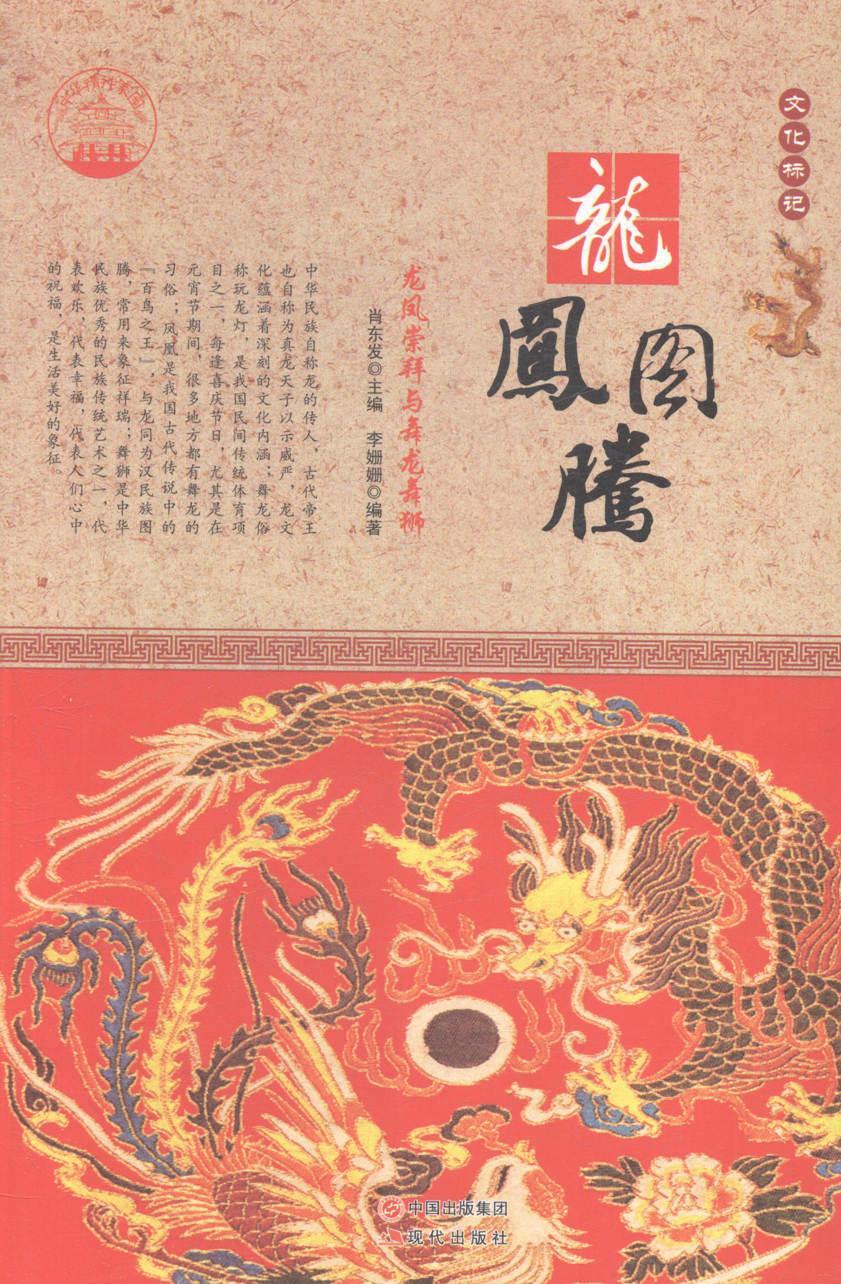 中华精神家园
文化标记
龍鳳图騰
龙凤崇拜与舞龙舞狮
肖东发◎主编 李姗姗◎编著
中华民族自称龙的传人，古代帝王
也自称为真龙天子以示威严，龙文
化蕴涵着深刻的文化内涵；舞龙俗
称玩龙灯，是我国民间传统体育项
目之一，每逢喜庆节日，尤其是在
元宵节期间，很多地方都有舞龙的
习俗；凤凰是我国古代传说中的
『百鸟之王』，与龙同为汉民族图
腾，常用来象征祥瑞；舞狮是中华
民族优秀的民族传统艺术之一，代
表欢乐，代表幸福，代表人们心中
的祝福，是生活美好的象征。
中国出版集团
现代出版社